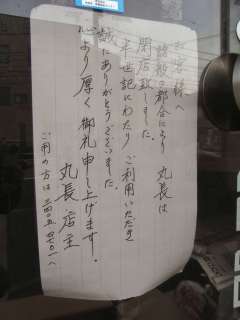 お客様へ
諸般の都合により 丸長は
閉店致しました。
半世記にわたり ご利用いただき
誠にありがとうございました
心より厚く御礼申し上げます。
丸長 店主
ご用の方は 三四〇五 四七〇一へ